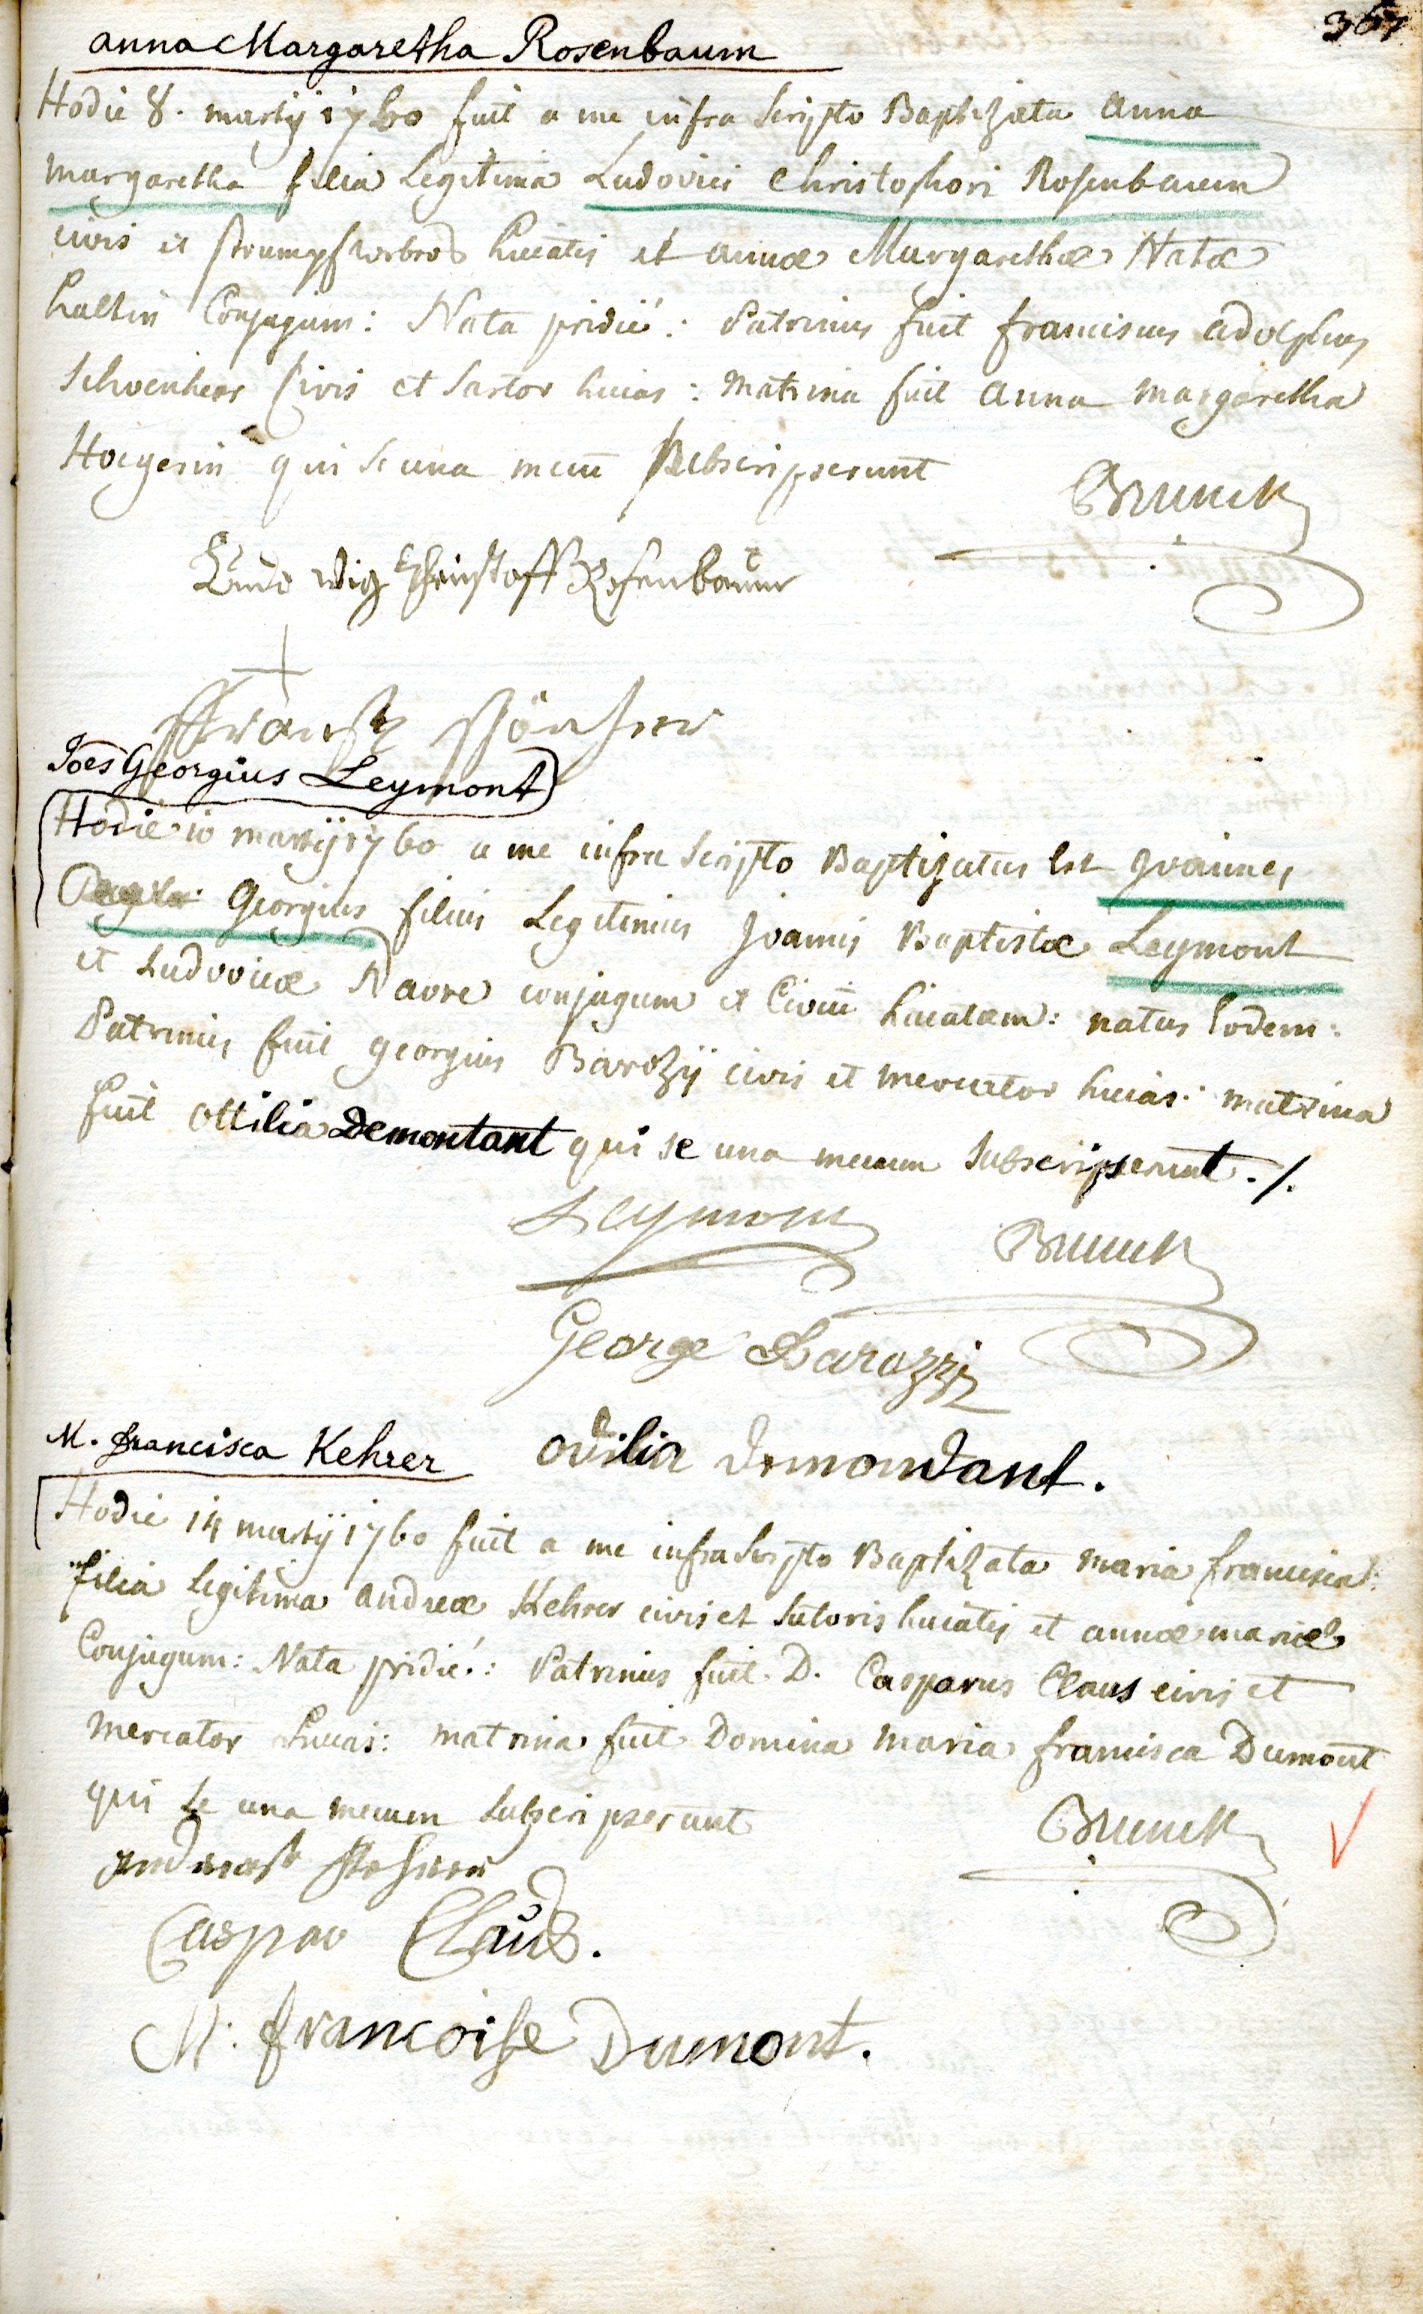 367
anna Margaretha Rosenbaum
Hodie 8. martij 1760 fuit a me infra scripto Baptizata anna
margaretha filia Legitima Ludovici Christophori Rosenbaum
civis et strumpfwebers hicatis et annæ Margarethæ Natæ
Conjugum: Nata pridié: Patrinus fuit franciscus adolphus
Schoenherr Civis et Sartor hicias: matrina fuit anna margaretha
Hoegerin qui se una mecũ subscripserunt
Brunck
Ludwig Christoff Rosenbaum
+
Frantz
Joēs Georgius Leymont
Hodie 10 martij 1760 a me infra scripto Baptizatus Est Joannes
Georgius filius Legitimus Joannis Baptistæ Leymont
et Ludovicæ Navre conjugum et Civiũ hicatum: natus Eodem:
Patrinus fuit georgius Barozij civis et mercator hicias: matrina
fuit ottilia Demontant qui se una mecum subscripserunt ./.
Leymont
Brunck
George Barozzi
M. francisca Kehrer
ottilia demondant.
Hodie 14 martij 1760 fuit a me infrascripto Baptizata maria francisca:
filia legitima andreæ Kehrer civis et sutoris hicatis et annæ mariæ
Conjugum: Nata pridié: Patrinus fuit D. Casparus Claus civis et
mercator hicias: matrina fuit Domina maria francisca Dumont
qui se una mecum subscripserunt
Brunck
andreas
Caspar Claus.
M: francoise Dumont.